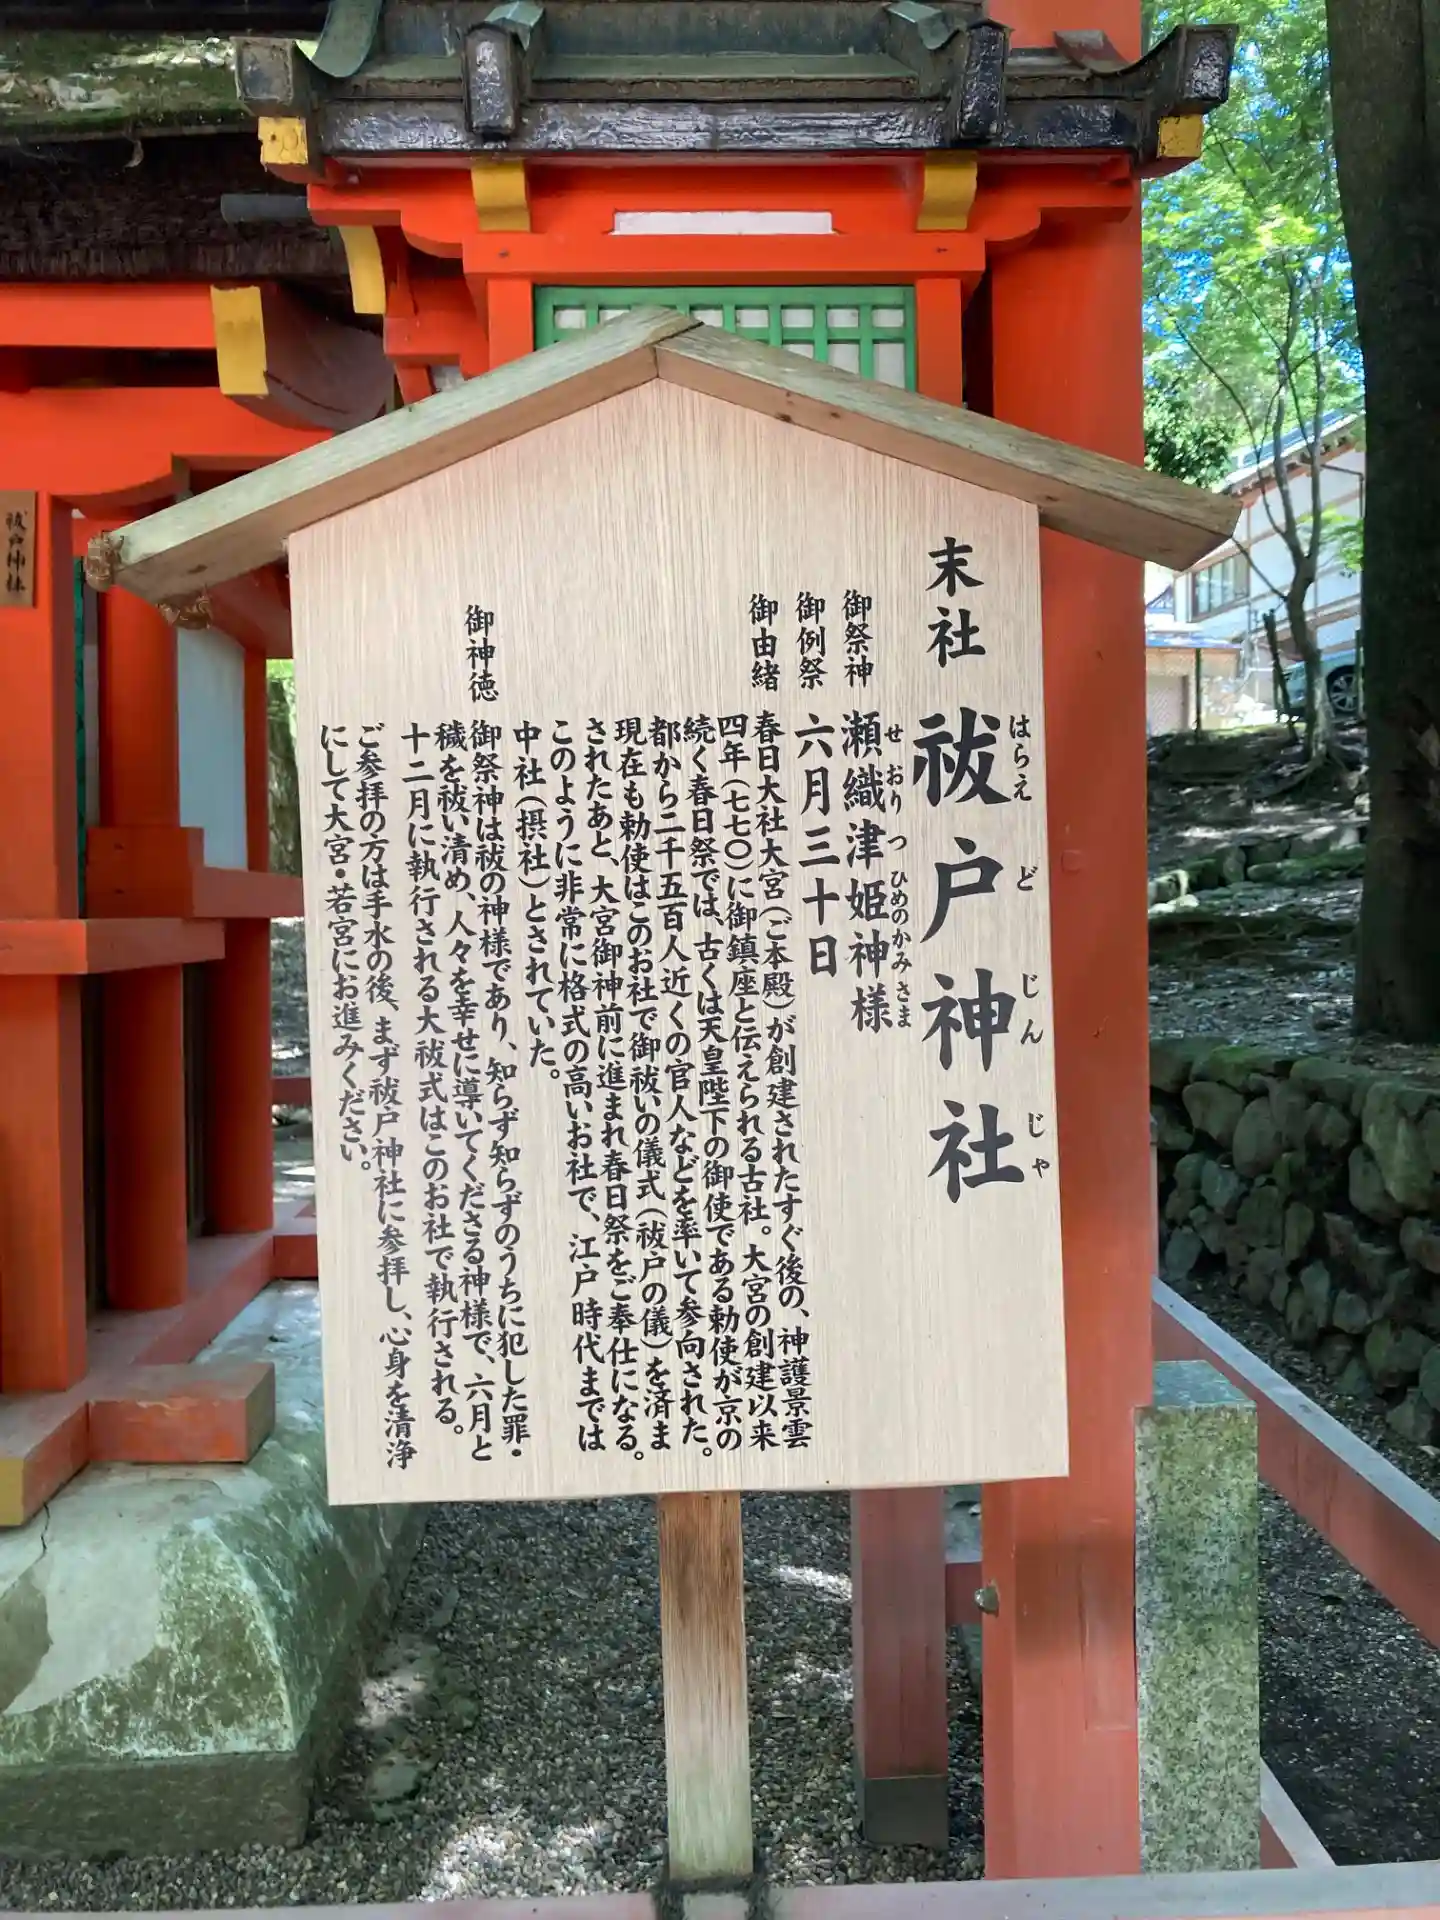 末社 祓戸神社
はらえ ど じん じゃ
御祭神 瀬織津姫神様
せ おり つ ひめのかみさま
御例祭 六月三十日
御由緒 春日大社大宮（ご本殿）が創建されたすぐ後の、神護景雲
四年（七七〇）に御鎮座と伝えられる古社。大宮の創建以来
続く春日祭では、古くは天皇陛下の御使である勅使が京の
都から二千五百人近くの官人などを率いて参向された。
現在も勅使はこのお社で御祓いの儀式（祓戸の儀）を済ま
されたあと、大宮御神前に進まれ春日祭をご奉仕になる。
このように非常に格式の高いお社で、江戸時代までは
中社（摂社）とされていた。
御神徳 御祭神は祓の神様であり、知らず知らずのうちに犯した罪・
穢を祓い清め、人々を幸せに導いてくださる神様で、六月と
十二月に執行される大祓式はこのお社で執行される。
ご参拝の方は手水の後、まず祓戸神社に参拝し、心身を清浄
にして大宮・若宮にお進みください。
祓戸神社